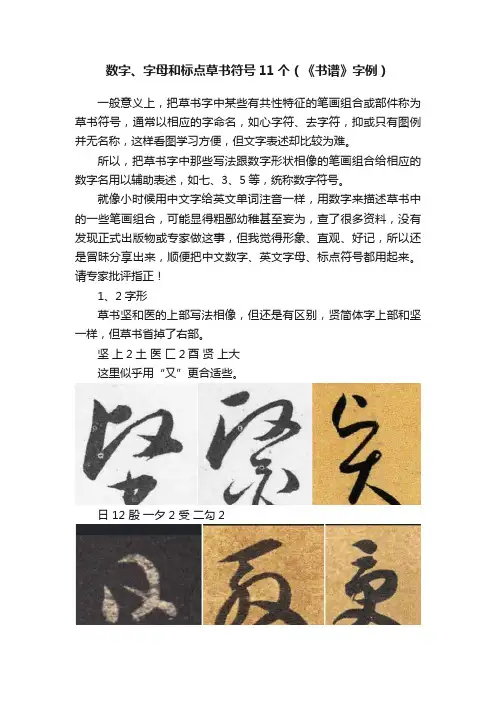 数字、字母和标点草书符号11个（《书谱》字例）
一般意义上，把草书字中某些有共性特征的笔画组合或部件称为
草书符号，通常以相应的字命名，如心字符、去字符，抑或只有图例
并无名称，这样看图学习方便，但文字表述却比较为难。
所以，把草书字中那些写法跟数字形状相像的笔画组合给相应的
数字名用以辅助表述，如七、3、5等，统称数字符号。
就像小时候用中文字给英文单词注音一样，用数字来描述草书中
的一些笔画组合，可能显得粗鄙幼稚甚至妄为，查了很多资料，没有
发现正式出版物或专家做这事，但我觉得形象、直观、好记，所以还
是冒昧分享出来，顺便把中文数字、英文字母、标点符号都用起来。
请专家批评指正！
1、2字形
草书坚和医的上部写法相像，但还是有区别，贤简体字上部和坚
一样，但草书省掉了右部。
坚 上2土 医 匚2酉 贤 上大
这里似乎用“又”更合适些。
日 12 殷 一夕2 受 二勾2